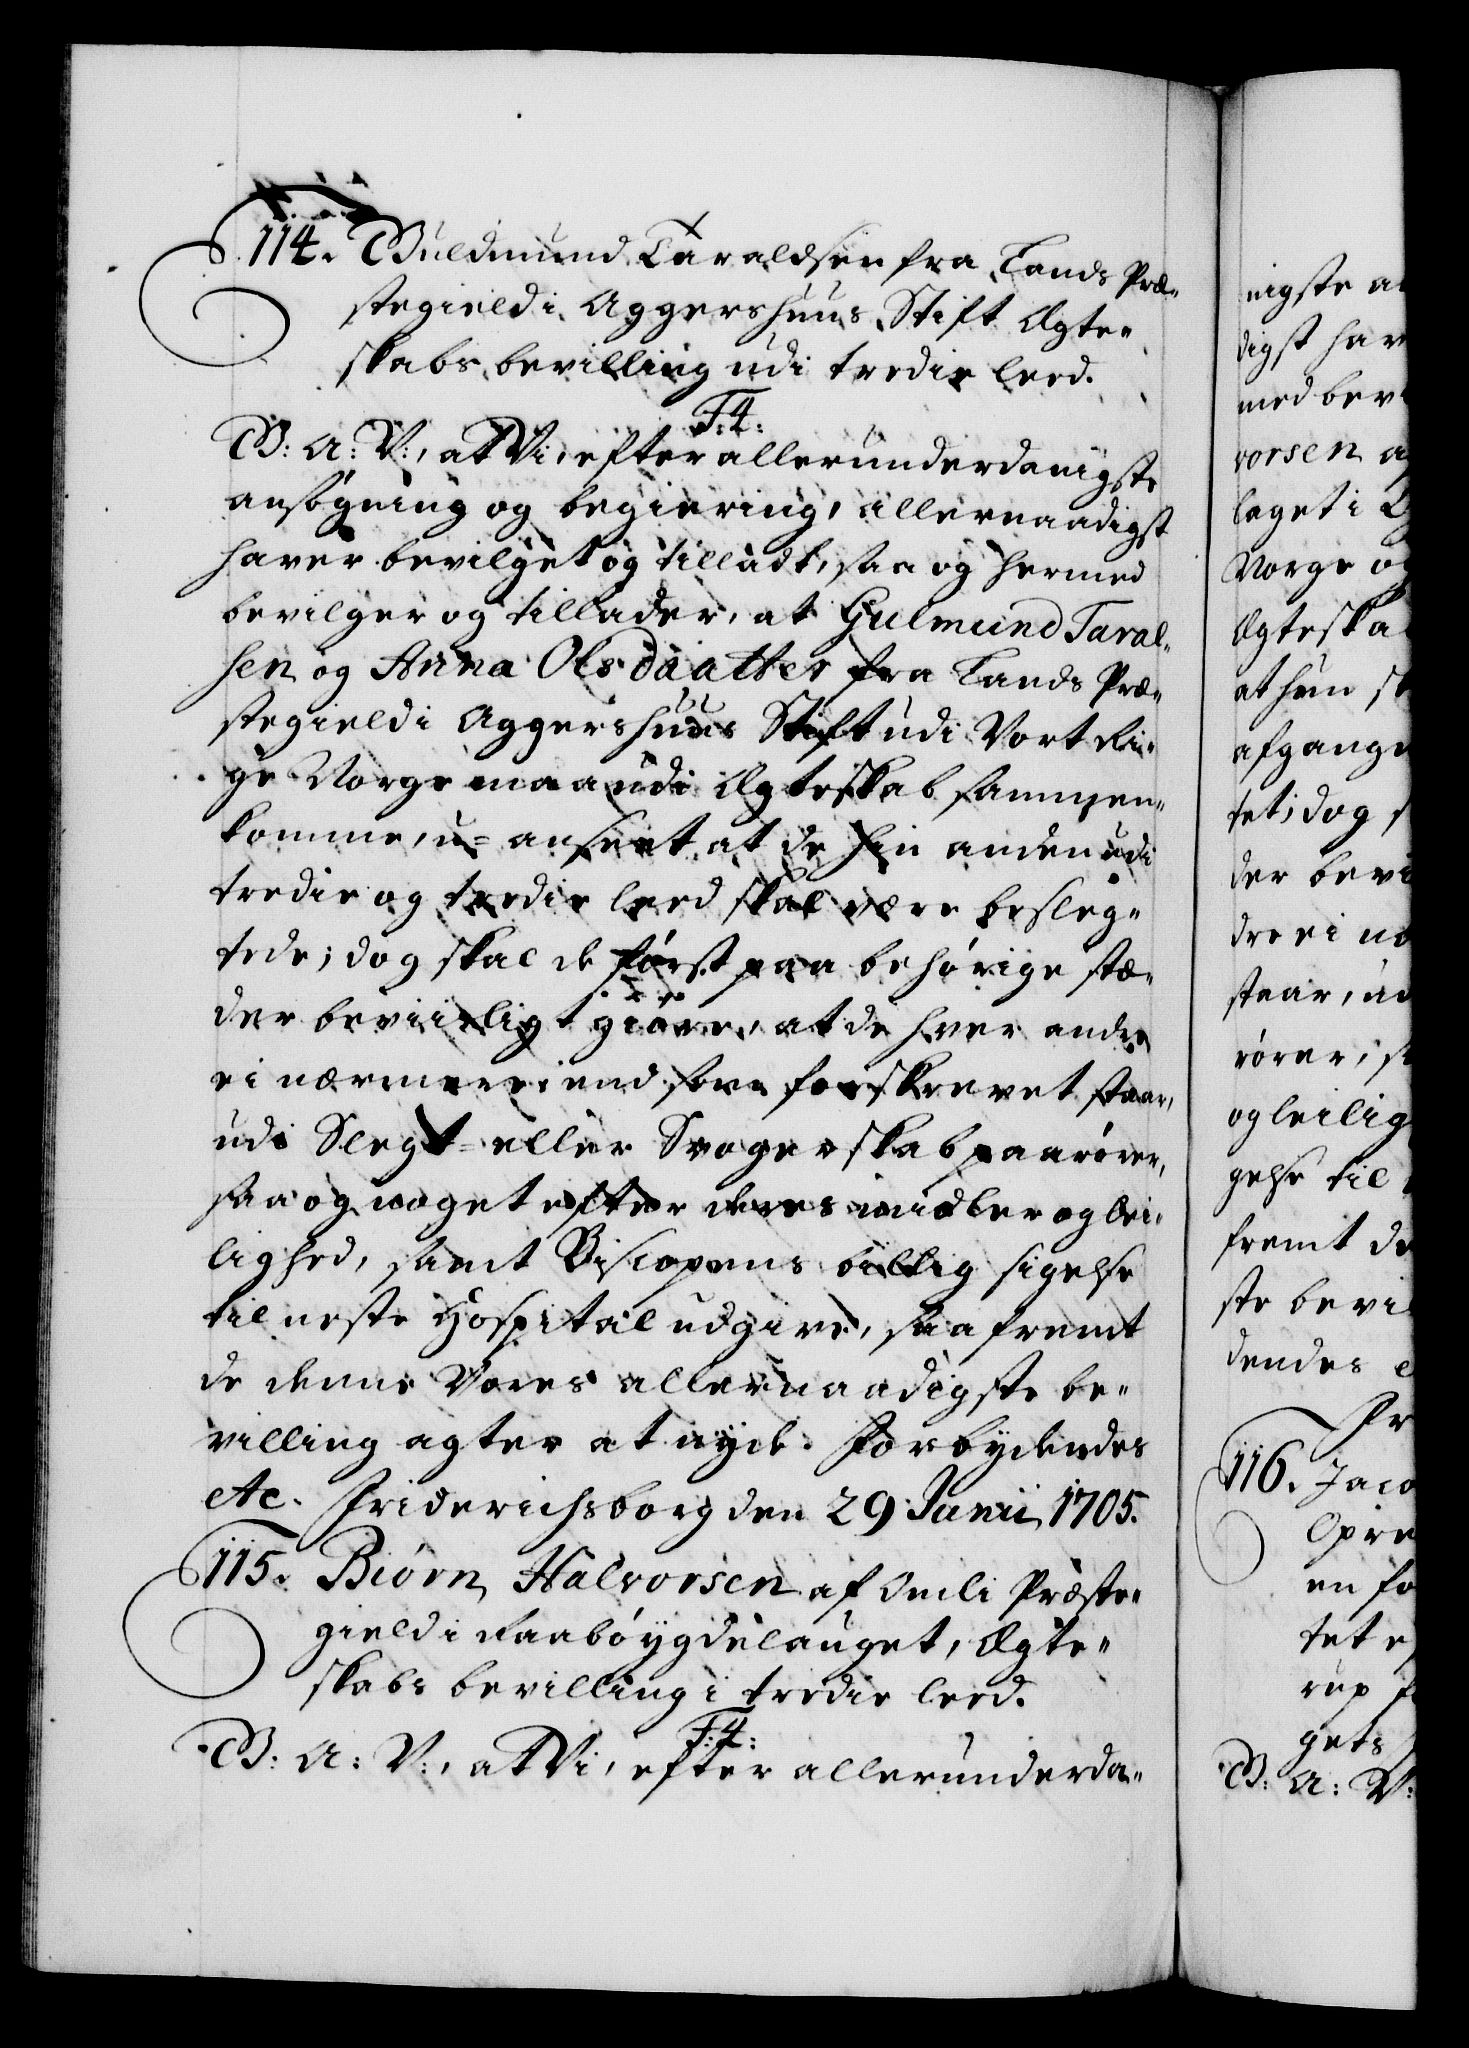 114. Guldmund Taraldsen fra Lands Præ-
stegield i Aggershuus Stift Ægte-
skabs bevilling udi tredie leed.
F:4:
G: A: V:, at Vi, efter allerunderdanigste
ansøgning og begiering, allernaadigst
haver bevilget og tilladt, saa og hermed
bevilger og tillader, at Gulmund Taral-
sen og Anna Olsdaatter fra Lands Præ-
stegield i Aggershuus Stift udi Vort Ri-
ge Norge maa udi Ægteskab sammen-
komme, u-anseet at de hin anden udi
tredie og tredie leed skal være beslæg-
tede; dog skal de først paa behørige stæ-
der beviislig giøre, at de hver andre
ei nærmere end som forskrevet staar,
udi Slegt- eller Svogerskab paarører,
saa og noget efter deres midler og lei-
lighed, samt Biscopens billig sigelse
til neste Hospital udgive, saafremt
de denne Vores allernaadigste be-
villing agter at nyde. Forbydendes
etc. Friderichsborg den 29 Junii 1705.
115. Biørn Halvorsen af Omli Præste-
gield i Raabøygdelauget, Ægte-
skabs bevilling i tredie leed.
F:4:
G: A: V:, at Vi, efter allerunderda-
nigste an
digst hav
med bev
vorsen a
laget i
Norge og
Ægteska
at hun
afgange
tet; dog s
der bevi
dre ei
staar, ud
rører, s
og leilig
gelse til
fremt de
ste bevil
dendes e
Fr
116. Jaco
Opre
en fo
tet e
rup f
gets
G: A: V: